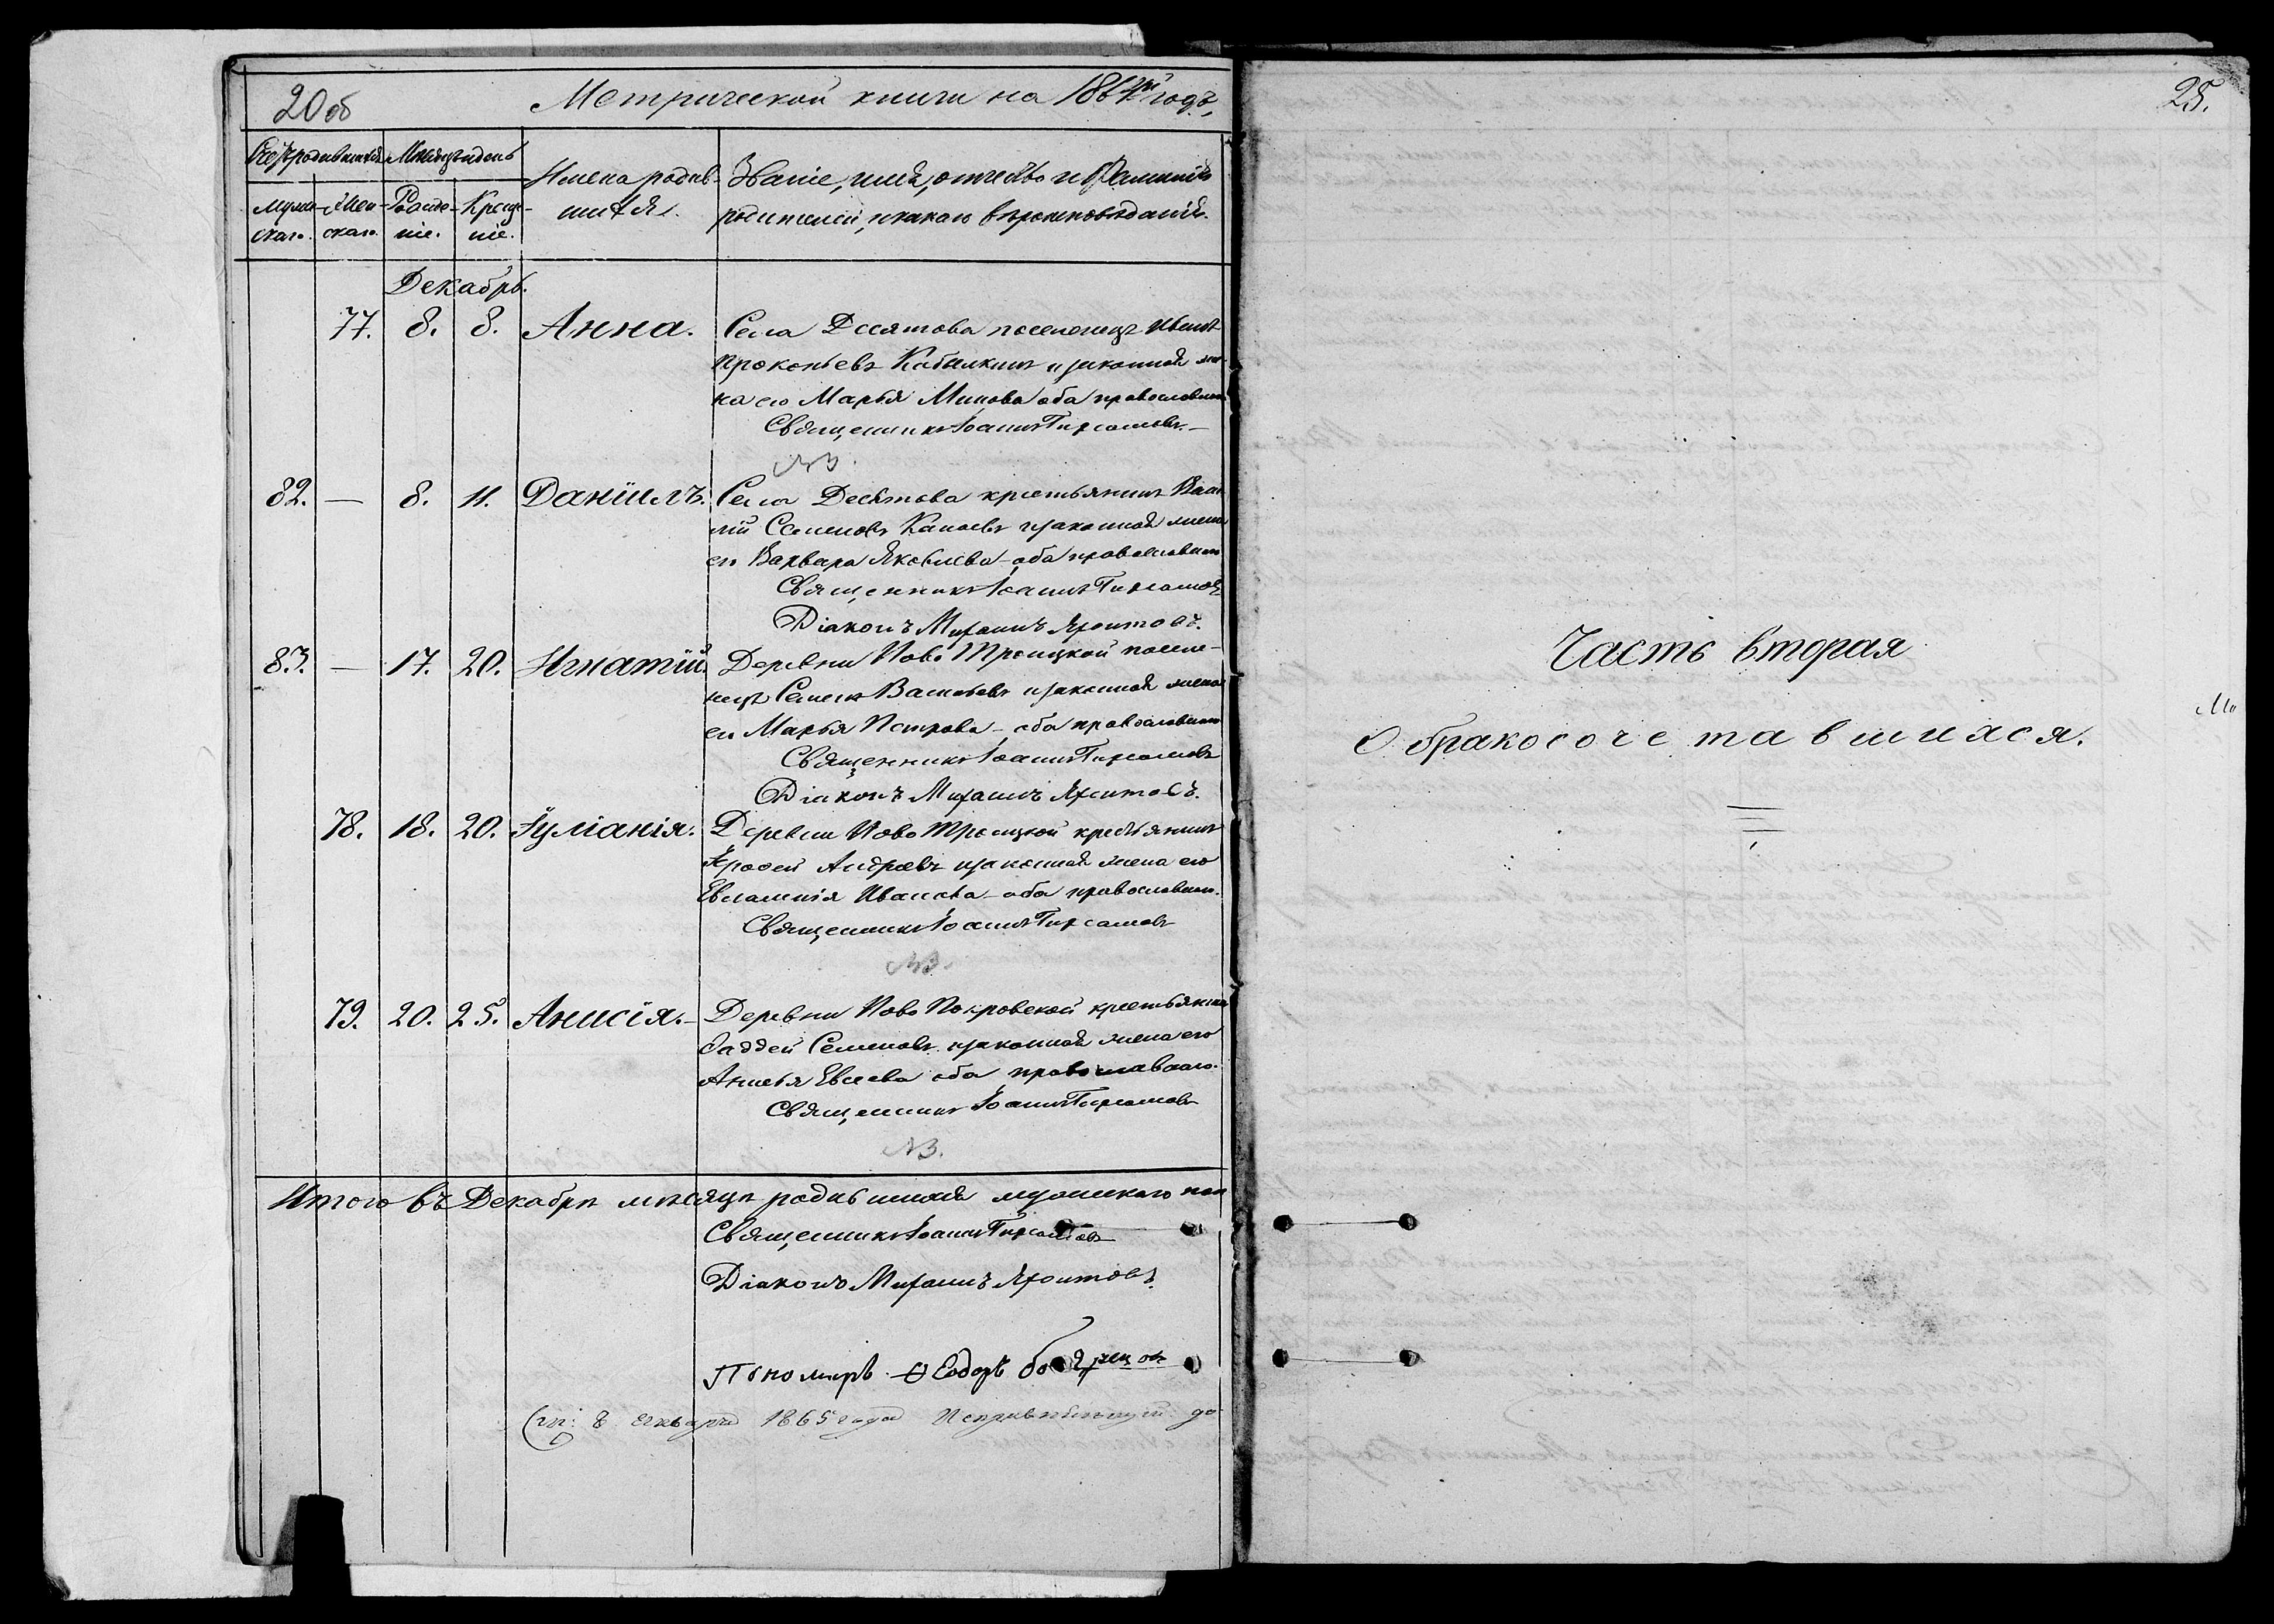 20об
Метрической книги на 1864й годъ,
Счетъ родившихся
Мѣсяцъ и день
Имена родив-
шихся.
Званіе, имя, отчество и Фамилія
родителей, и какого вѣроисповѣданія.
Муже-
скаго.
Жен-
скаго.
Рожде-
ніе.
Креще-
ніе.
Декабрь.
77. 8. 8. Анна. Села Десятова поселенецъ Иванъ
Прокопьевъ Кобылкинъ и законная же-
на его Марья Минова оба православнаго
Священникъ Іоаннъ
NB.
82. — 8. 11. Даніилъ. Села Десятова крестьянинъ Васи
лій Семеновъ Канаевъ и законная жена
его Варвара Яковлева – оба православнаго
Священникъ Іоаннъ
Діаконъ Михаилъ
83. — 17. 20. Игнатій. Деревни Ново Троицкой поселе-
нецъ Семенъ Васильевъ и законная жена
его Марья Петрова – оба православнаго
Священникъ Іоаннъ
Діаконъ Михаилъ
78. 18. 20. Іуліанія. Деревни Ново Троицкой крестьянинъ
Ерофей Андреевъ и законная жена его
Евлампія Иванова – оба православнаго.
Священникъ Іоаннъ
NB.
79. 20. 25. Анисія. Деревни Ново Покровской крестьянинъ
Фаддей Семеновъ и законная жена его
Анисья Евсеева оба православнаго.
Священникъ Іоаннъ
NB.
Итого въ Декабрѣ мѣсяцѣ родившихся мужескаго пола
Священникъ Іоаннъ
Діаконъ Михаилъ
Пономарь Ѳеодоръ
8 января 1865 года
25.
Часть вторая
О бракосочетавшихся.